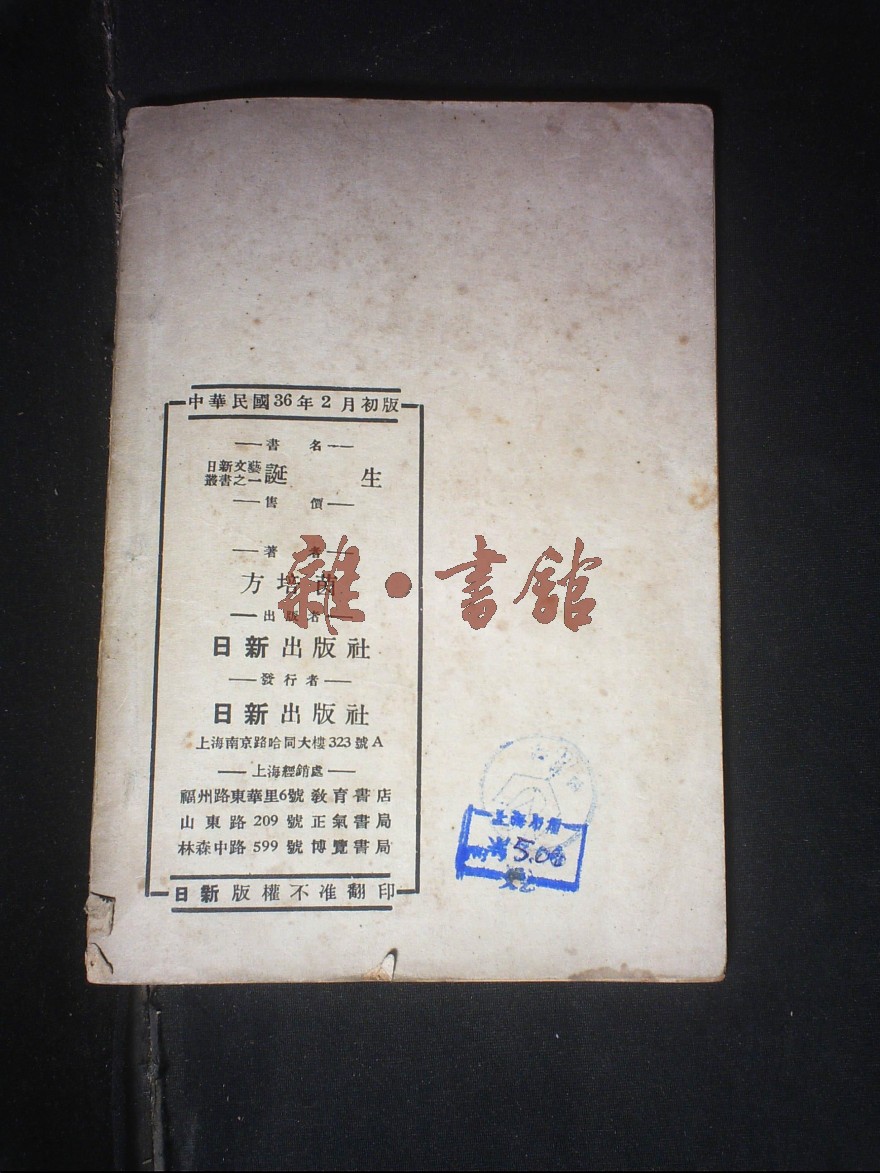 中華民國36年2月初版
書名
日新文藝
叢書之一
誕生
售價
著者
方培茵
出版者
日新出版社
發行者
日新出版社
上海南京路哈同大樓323號A
上海經銷處
福州路東華里6號教育書店
山東路209號正氣書局
林森中路599號博覽書局
日新版權不准翻印
雜·書館
上海
5.00